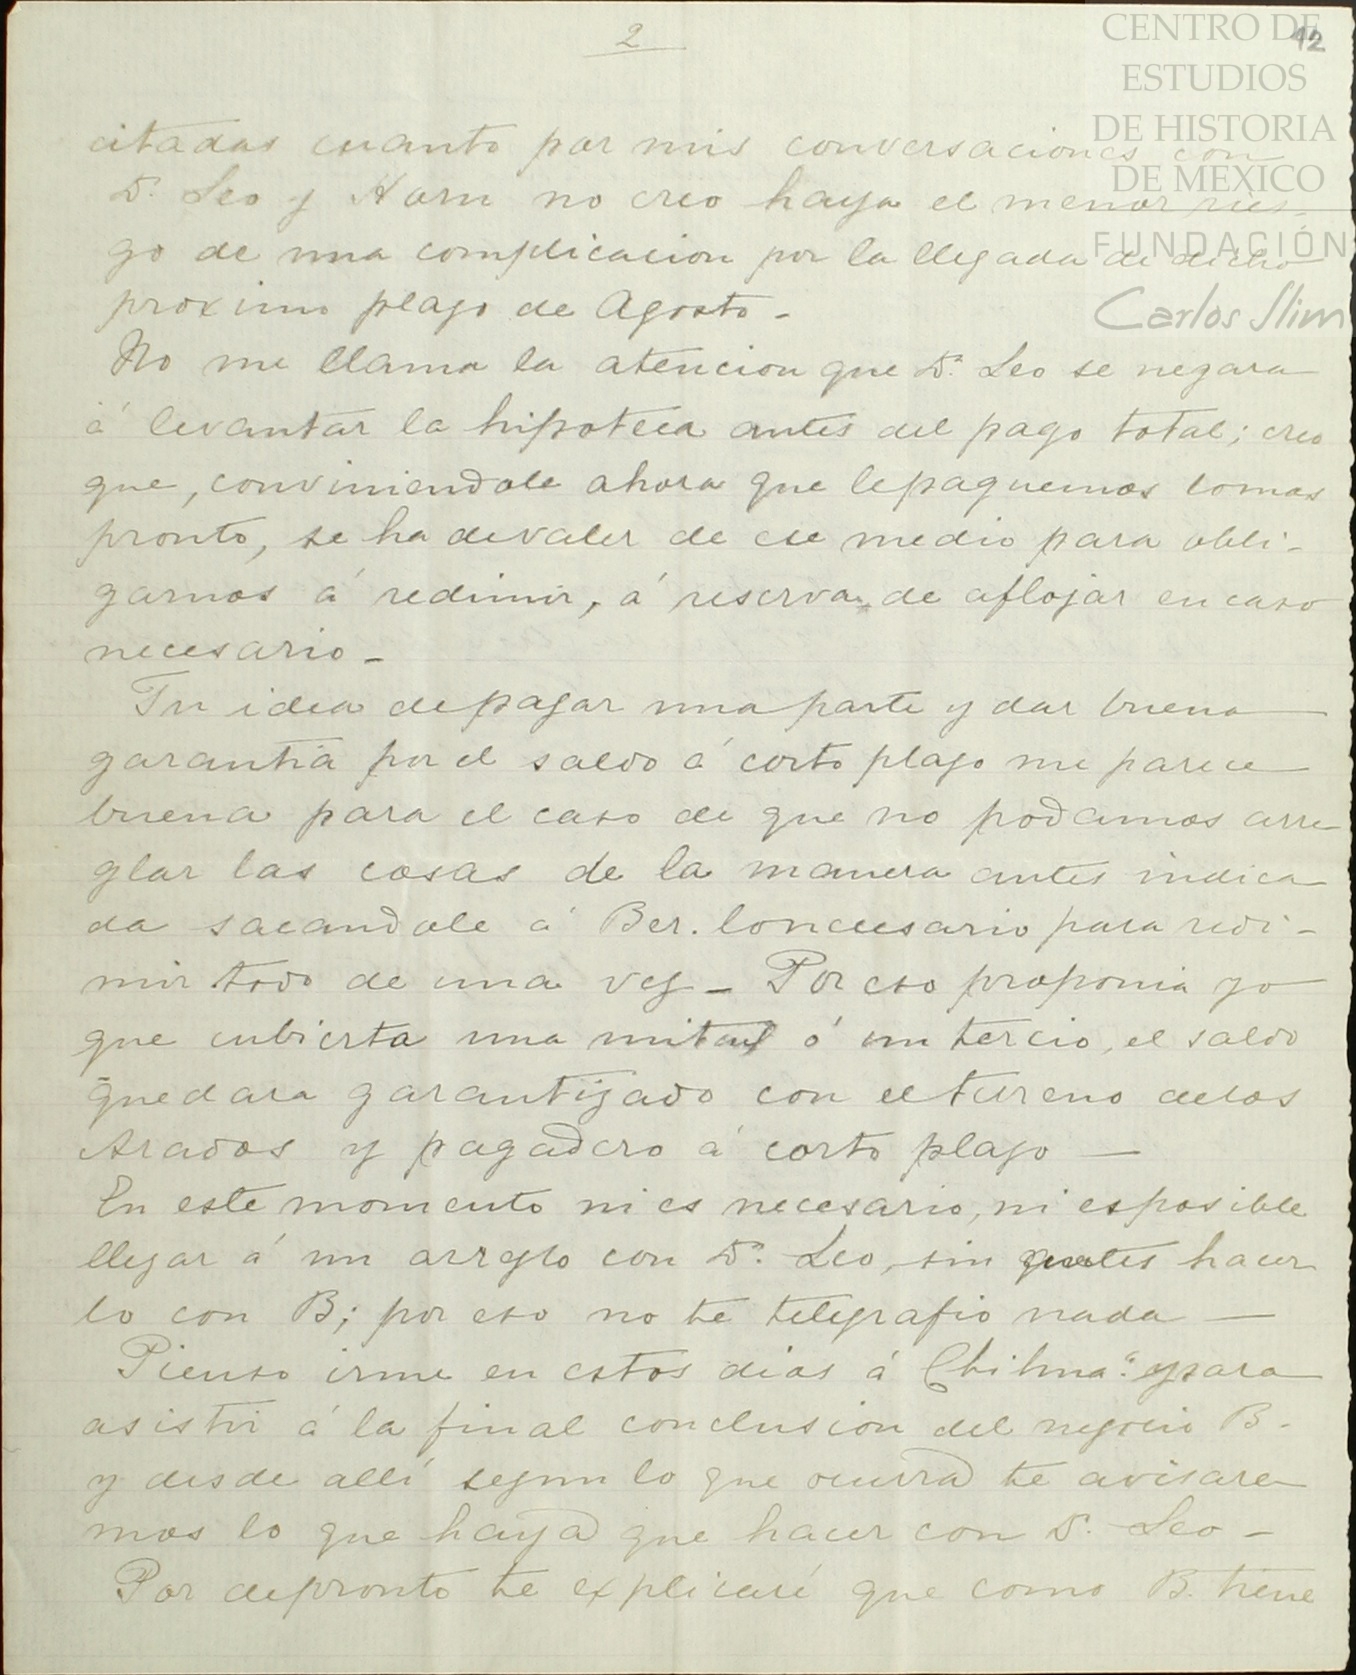 2
12
CENTRO DE
ESTUDIOS
DE HISTORIA
DE MÉXICO
FUNDACIÓN
Carlos Slim
citadas cuanto por mis conversaciones con
Dn. Leo y Horn no creo haya el menor ries-
go de una complicacion por la llegada de dicho
proximo plazo de Agosto -
No me llama la atencion que Dn. Leo se negara
á levantar la hipoteca antes del pago total; creo
que, conviniendole ahora que le paguemos lo mas
pronto, se ha de valer de ese medio para obli-
garnos á redimir, á reserva de aflojar en caso
necesario -
Tu idea de pagar una parte y dar buena
garantia por el saldo á corto plazo me parece
buena para el caso de que no podamos arre-
glar las cosas de la manera antes indica-
da sacandole á Ber. lo necesario para redi-
mir todo de una vez - Por eso proponia yo
que cubierta una mitad ó un tercio, el saldo
quedara garantizado con el terreno de los
Arados y pagadero á corto plazo -
En este momento ni es necesario, ni es posible
llegar á un arreglo con Dn. Leo, sin antes hacer
lo con B; por eso no te telegrafio nada -
Pienso irme en estos dias á Chihua.a para
asistir á la final conclusion del negocio B.
y desde allí segun lo que ocurra te avisare
mos lo que haya que hacer con D. Leo -
Por de pronto te explicaré que como B. tiene